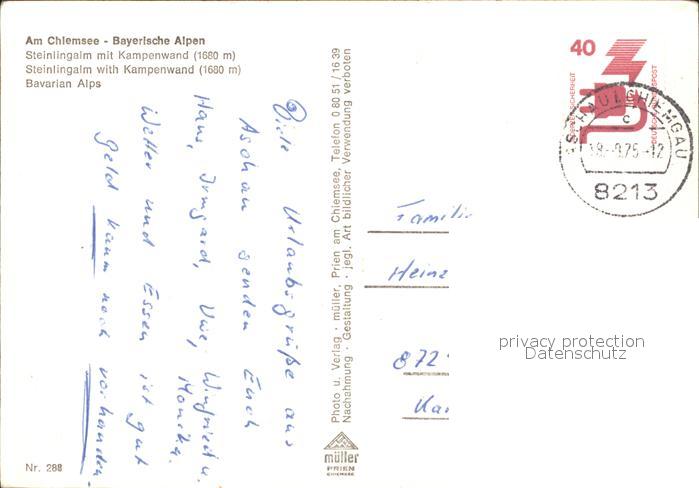 Am Chiemsee - Bayerische Alpen
Steinlingalm mit Kampenwand (1680 m)
Steinlingalm with Kampenwand (1680 m)
Bavarian Alps
Viele Urlaubsgrüße aus
Aschau senden Euch
Hans, Irmgard, Uwe, Winfried u.
Monika.
Wetter und Essen ist gut
Geld kaum noch vorhanden.
Nr. 288
Photo u. Verlag · müller, Prien am Chiemsee, Telefon 0 80 51 / 16 39
Nachahmung · Gestaltung · jegl. Art bildlicher Verwendung verboten
müller
PRIEN
CHIEMSEE
40
DEUTSCHE BUNDESPOST
CHIEMGAU
c
75-12
8213
Familie
Heinz
872
privacy protection
Datenschutz